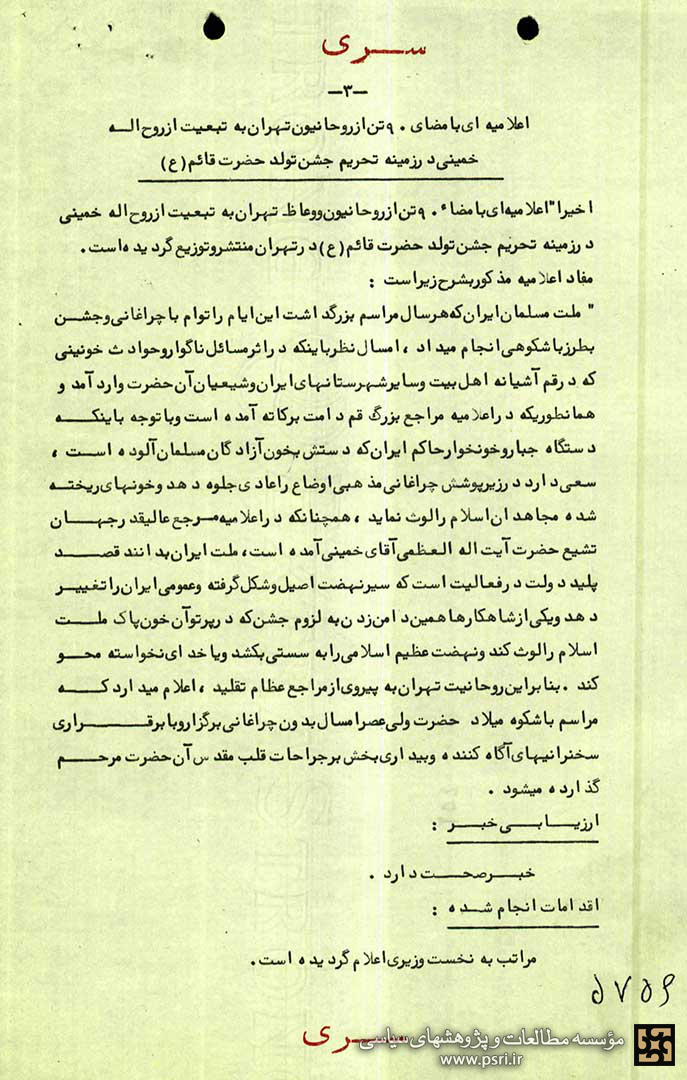 سری
-۳-
اعلامیه ای بامضای ۹۰ تن از روحانیون تهران به تبعیت از روح اله
خمینی در زمینه تحریم جشن تولد حضرت قائم (ع)
اخیرا" اعلامیه ای بامضاء ۹۰ تن از روحانیون ووعاظ تهران به تبعیت از روح اله خمینی
در زمینه تحریم جشن تولد حضرت قائم (ع) در تهران منتشر و توزیع گردیده است.
مفاد اعلامیه مذکور بشرح زیر است :
" ملت مسلمان ایران که هر سال مراسم بزرگداشت این ایام را توام با چراغانی و جشن
بطرز باشکوهی انجام میداد ، امسال نظر باینکه در اثر مسائل ناگوار و حوادث خونینی
که در قم آشیانه اهل بیت و سایر شهرستانهای ایران و شیعیان آن حضرت وارد آمد و
همانطوریکه در اعلامیه مراجع بزرگ قم دامت برکاته آمده است و با توجه باینکه
دستگاه جبار و خونخوار حاکم ایران که دستش بخون آزادگان مسلمان آلوده است ،
سعی دارد در زیر پوشش چراغانی مذهبی اوضاع را عادی جلوه دهد و خونهای ریخته
شده مجاهدان اسلام را لوث نماید ، همچنانکه در اعلامیه مرجع عالیقدر جهان
تشیع حضرت آیت اله العظمی آقای خمینی آمده است، ملت ایران بدانند قصد
پلید دولت در فعالیت است که سیر نهضت اصیل و شکل گرفته و عمومی ایران را تغییر
دهد و یکی از شاهکارها همین دامن زدن به لزوم جشن که در پرتو آن خون پاک ملت
اسلام را لوث کند و نهضت عظیم اسلامی را به سستی بکشد و یا خدای نخواسته محو
کند . بنابراین روحانیت تهران به پیروی از مراجع عظام تقلید ، اعلام میدارد که
مراسم باشکوه میلاد حضرت ولی عصر امسال بدون چراغانی برگزار و با برقراری
سخنرانیهای آگاه کننده و بیداری بخش بر جراحات قلب مقدس آن حضرت مرحم
گذارده میشود .
ارزیابی خبر :
خبر صحت دارد .
اقدامات انجام شده :
مراتب به نخست وزیری اعلام گردیده است.
سری
مؤسسه مطالعات و پژوهشهای سیاسی
www.psri.ir